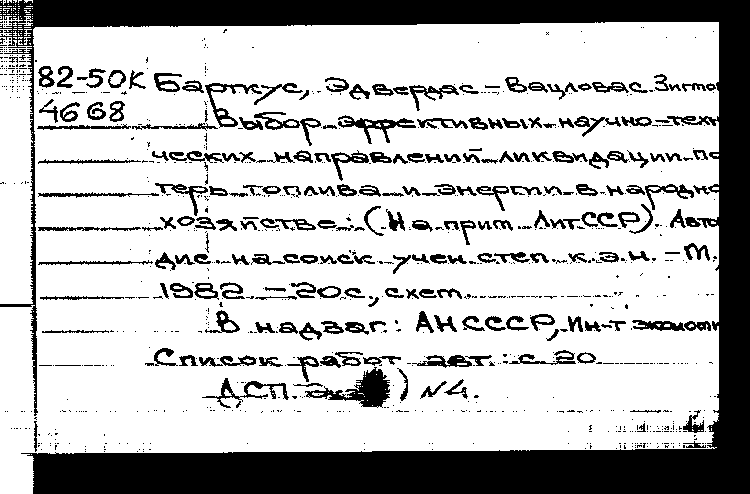 82-50К Барткус, Эдвердас-Вацловас Зигмо
4668 Выбор эффективных научно-техн
ческих направлений ликвидации по
терь топлива и энергии в народно
хозяйстве: (На прим. ЛитССР). Авто
дис. на соиск. учен. степ. к.э.н. - М.,
1982 - 20 с., схем.
В надзаг: АН СССР, Ин-т экономи
Список работ авт.: с. 20
ДСП. ) N4.